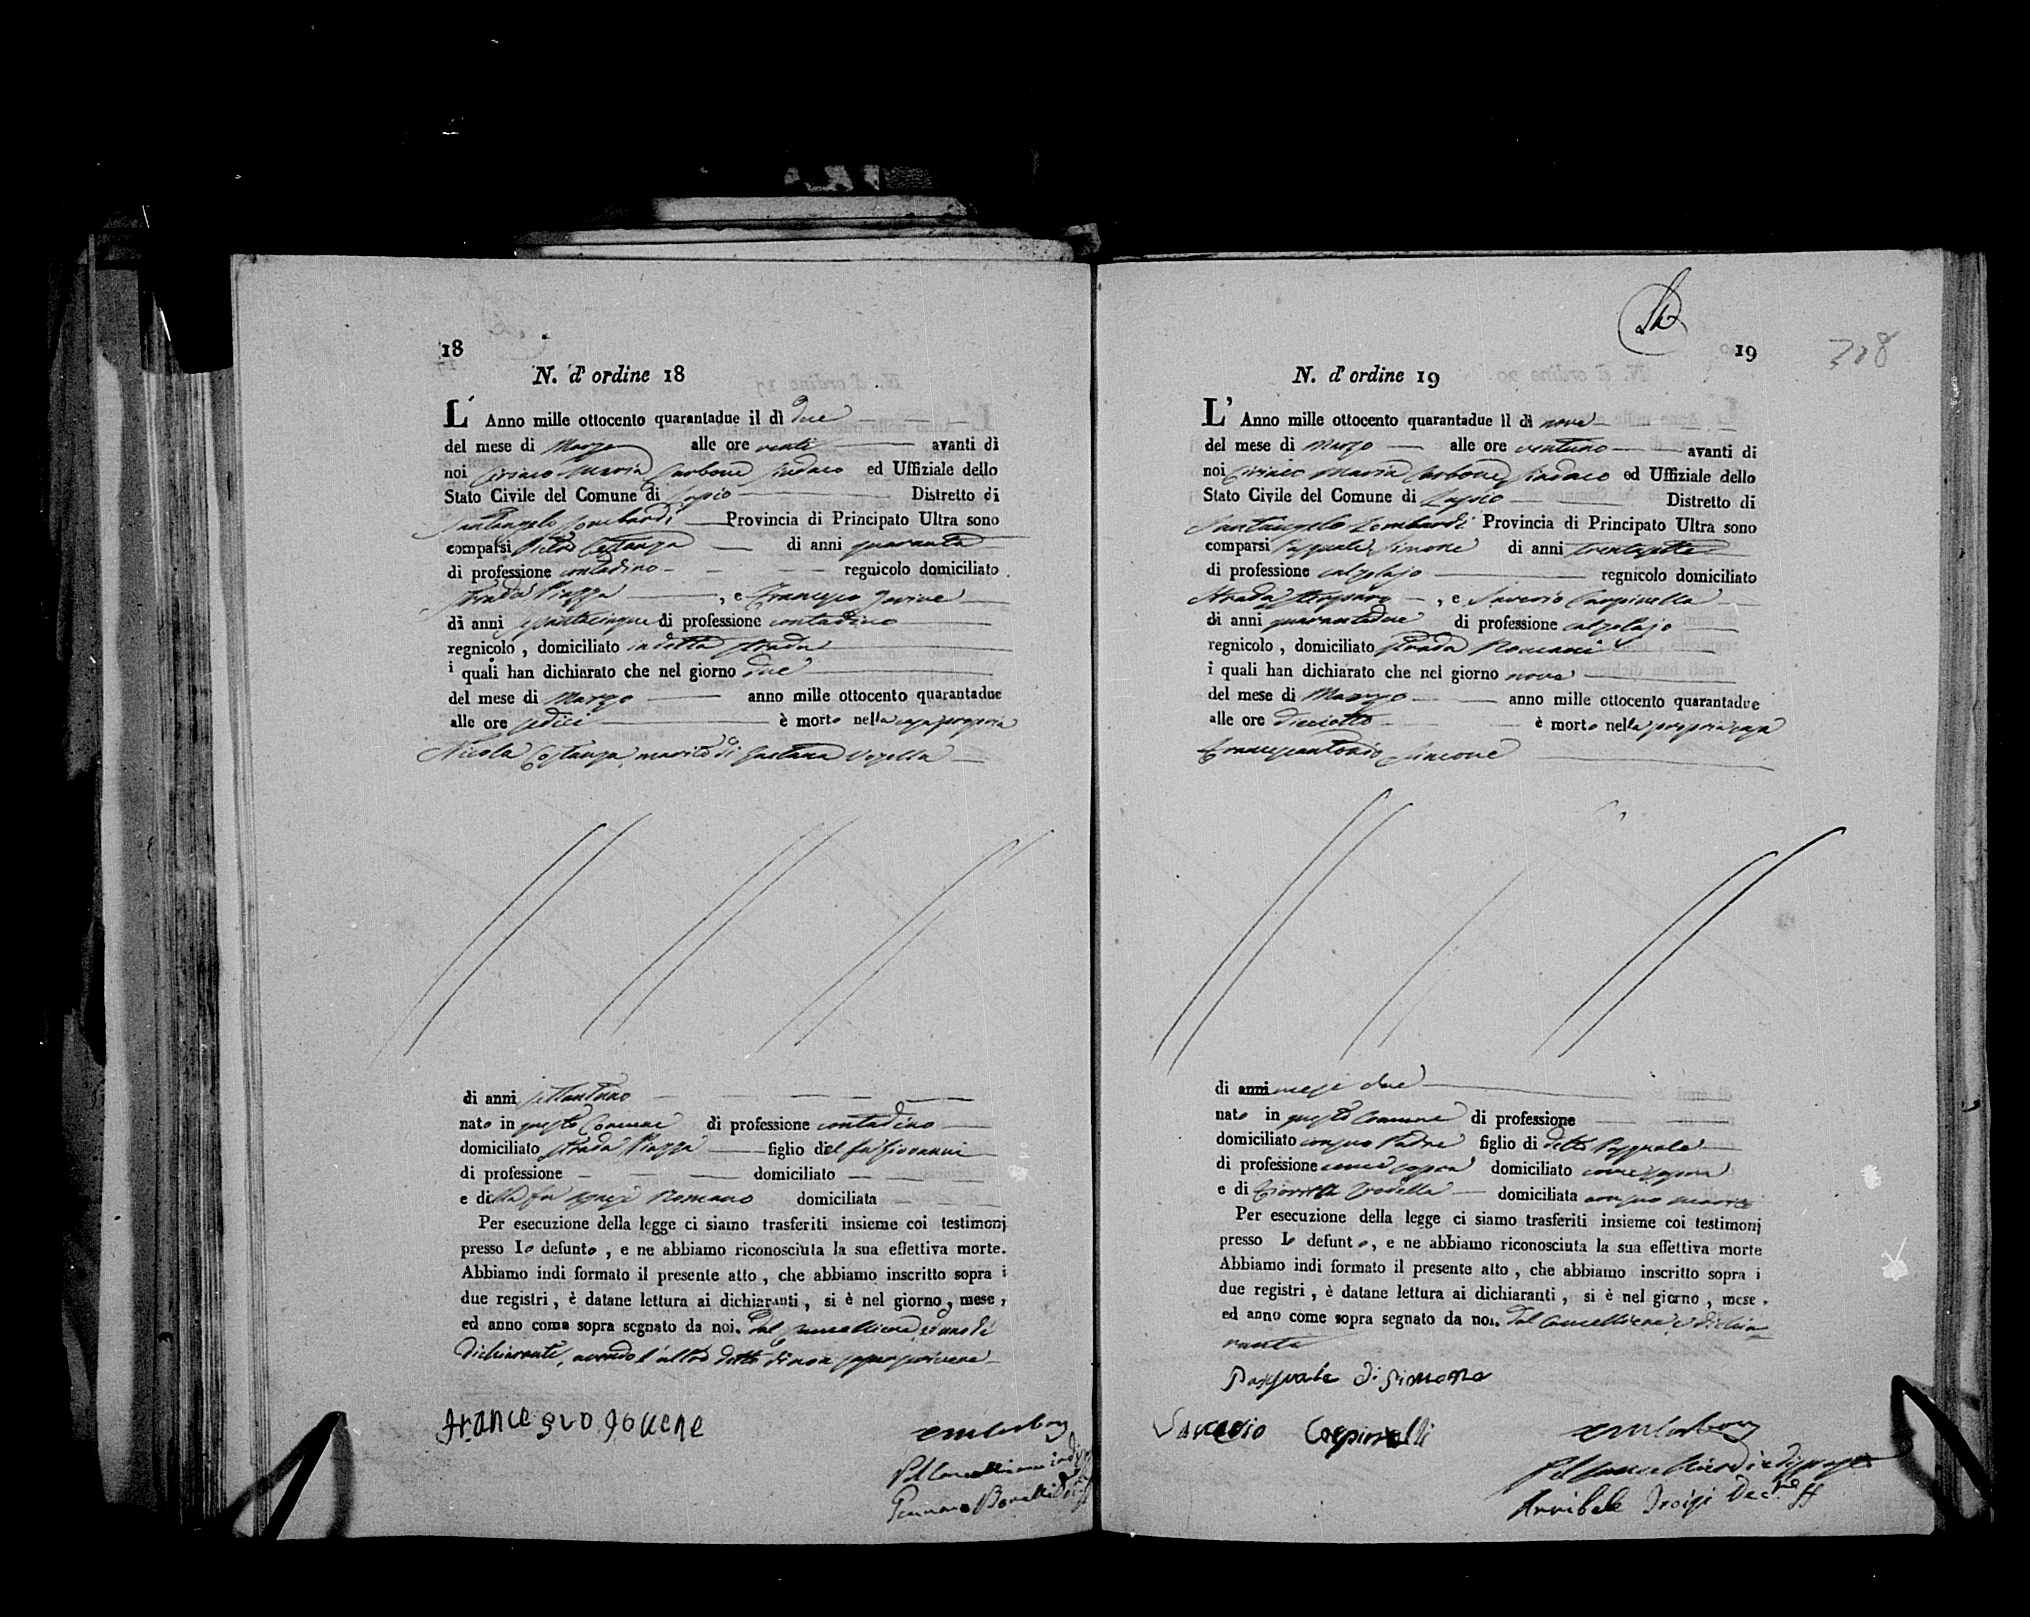 18
N. d' ordine 18
L' Anno mille ottocento quarantadue il dì due
del mese di Marzo alle ore venti avanti di
noi Ciriaco Maria Carbone Sindaco ed Uffiziale dello
Stato Civile del Comune di Lapio Distretto di
Santangelo Lombardi Provincia di Principato Ultra sono
comparsi Costanza di anni quaranta
di professione contadino regnicolo domiciliato
Strada Piazza , e Francesco Jovine
di anni di professione contadino
regnicolo , domiciliato in detta strada
i quali han dichiarato che nel giorno due
del mese di Marzo anno mille ottocento quarantadue
alle ore sedici è morto nella casa propria
Nicola Costanza marito di Gaetana
di anni settantuno
nato in questo Comune di professione contadino
domiciliato strada Piazza figlio del fu Giovanni
di professione domiciliato
e della fu Romano domiciliata
Per esecuzione della legge ci siamo trasferiti insieme coi testimonj
presso lo defunto , e ne abbiamo riconosciuta la sua effettiva morte.
Abbiamo indi formato il presente atto , che abbiamo inscritto sopra i
due registri , è datane lettura ai dichiaranti , si è nel giorno , mese ,
ed anno come sopra segnato da noi. Dal Cancelliere, ed uno di
dichiaranti, avendo l'altro detto di non saper scrivere
Francesco Jovene
Gennaro
19
318
N. d' ordine 19
L' Anno mille ottocento quarantadue il dì nove
del mese di Marzo alle ore ventuno avanti di
noi Ciriaco Maria Carbone Sindaco ed Uffiziale dello
Stato Civile del Comune di Lapio Distretto di
Santangelo Lombardi Provincia di Principato Ultra sono
comparsi Pasquale Simone di anni trentasette
di professione calzolajo regnicolo domiciliato
Strada , e Saverio Carpinella
di anni quarantadue di professione calzolajo
regnicolo , domiciliato Strada Romani
i quali han dichiarato che nel giorno nove
del mese di Marzo anno mille ottocento quarantadue
alle ore dieciotto è morto nella propria casa
Francescantonio Simone
di anni mesi due
nato in questo Comune di professione
domiciliato con suo Padre figlio di detto Pasquale
di professione come sopra domiciliato come sopra
e di domiciliata con suo marito
Per esecuzione della legge ci siamo trasferiti insieme coi testimonj
presso lo defunto , e ne abbiamo riconosciuta la sua effettiva morte
Abbiamo indi formato il presente atto , che abbiamo inscritto sopra i
due registri , è datane lettura ai dichiaranti , si è nel giorno , mese ,
ed anno come sopra segnato da noi. Dal Cancelliere, e dichia
ranti
Pasquale di Simone
Saverio
Annibale